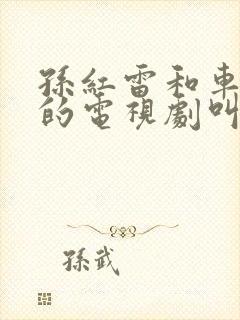 孫紅雷和車
的電視劇叫
孫武